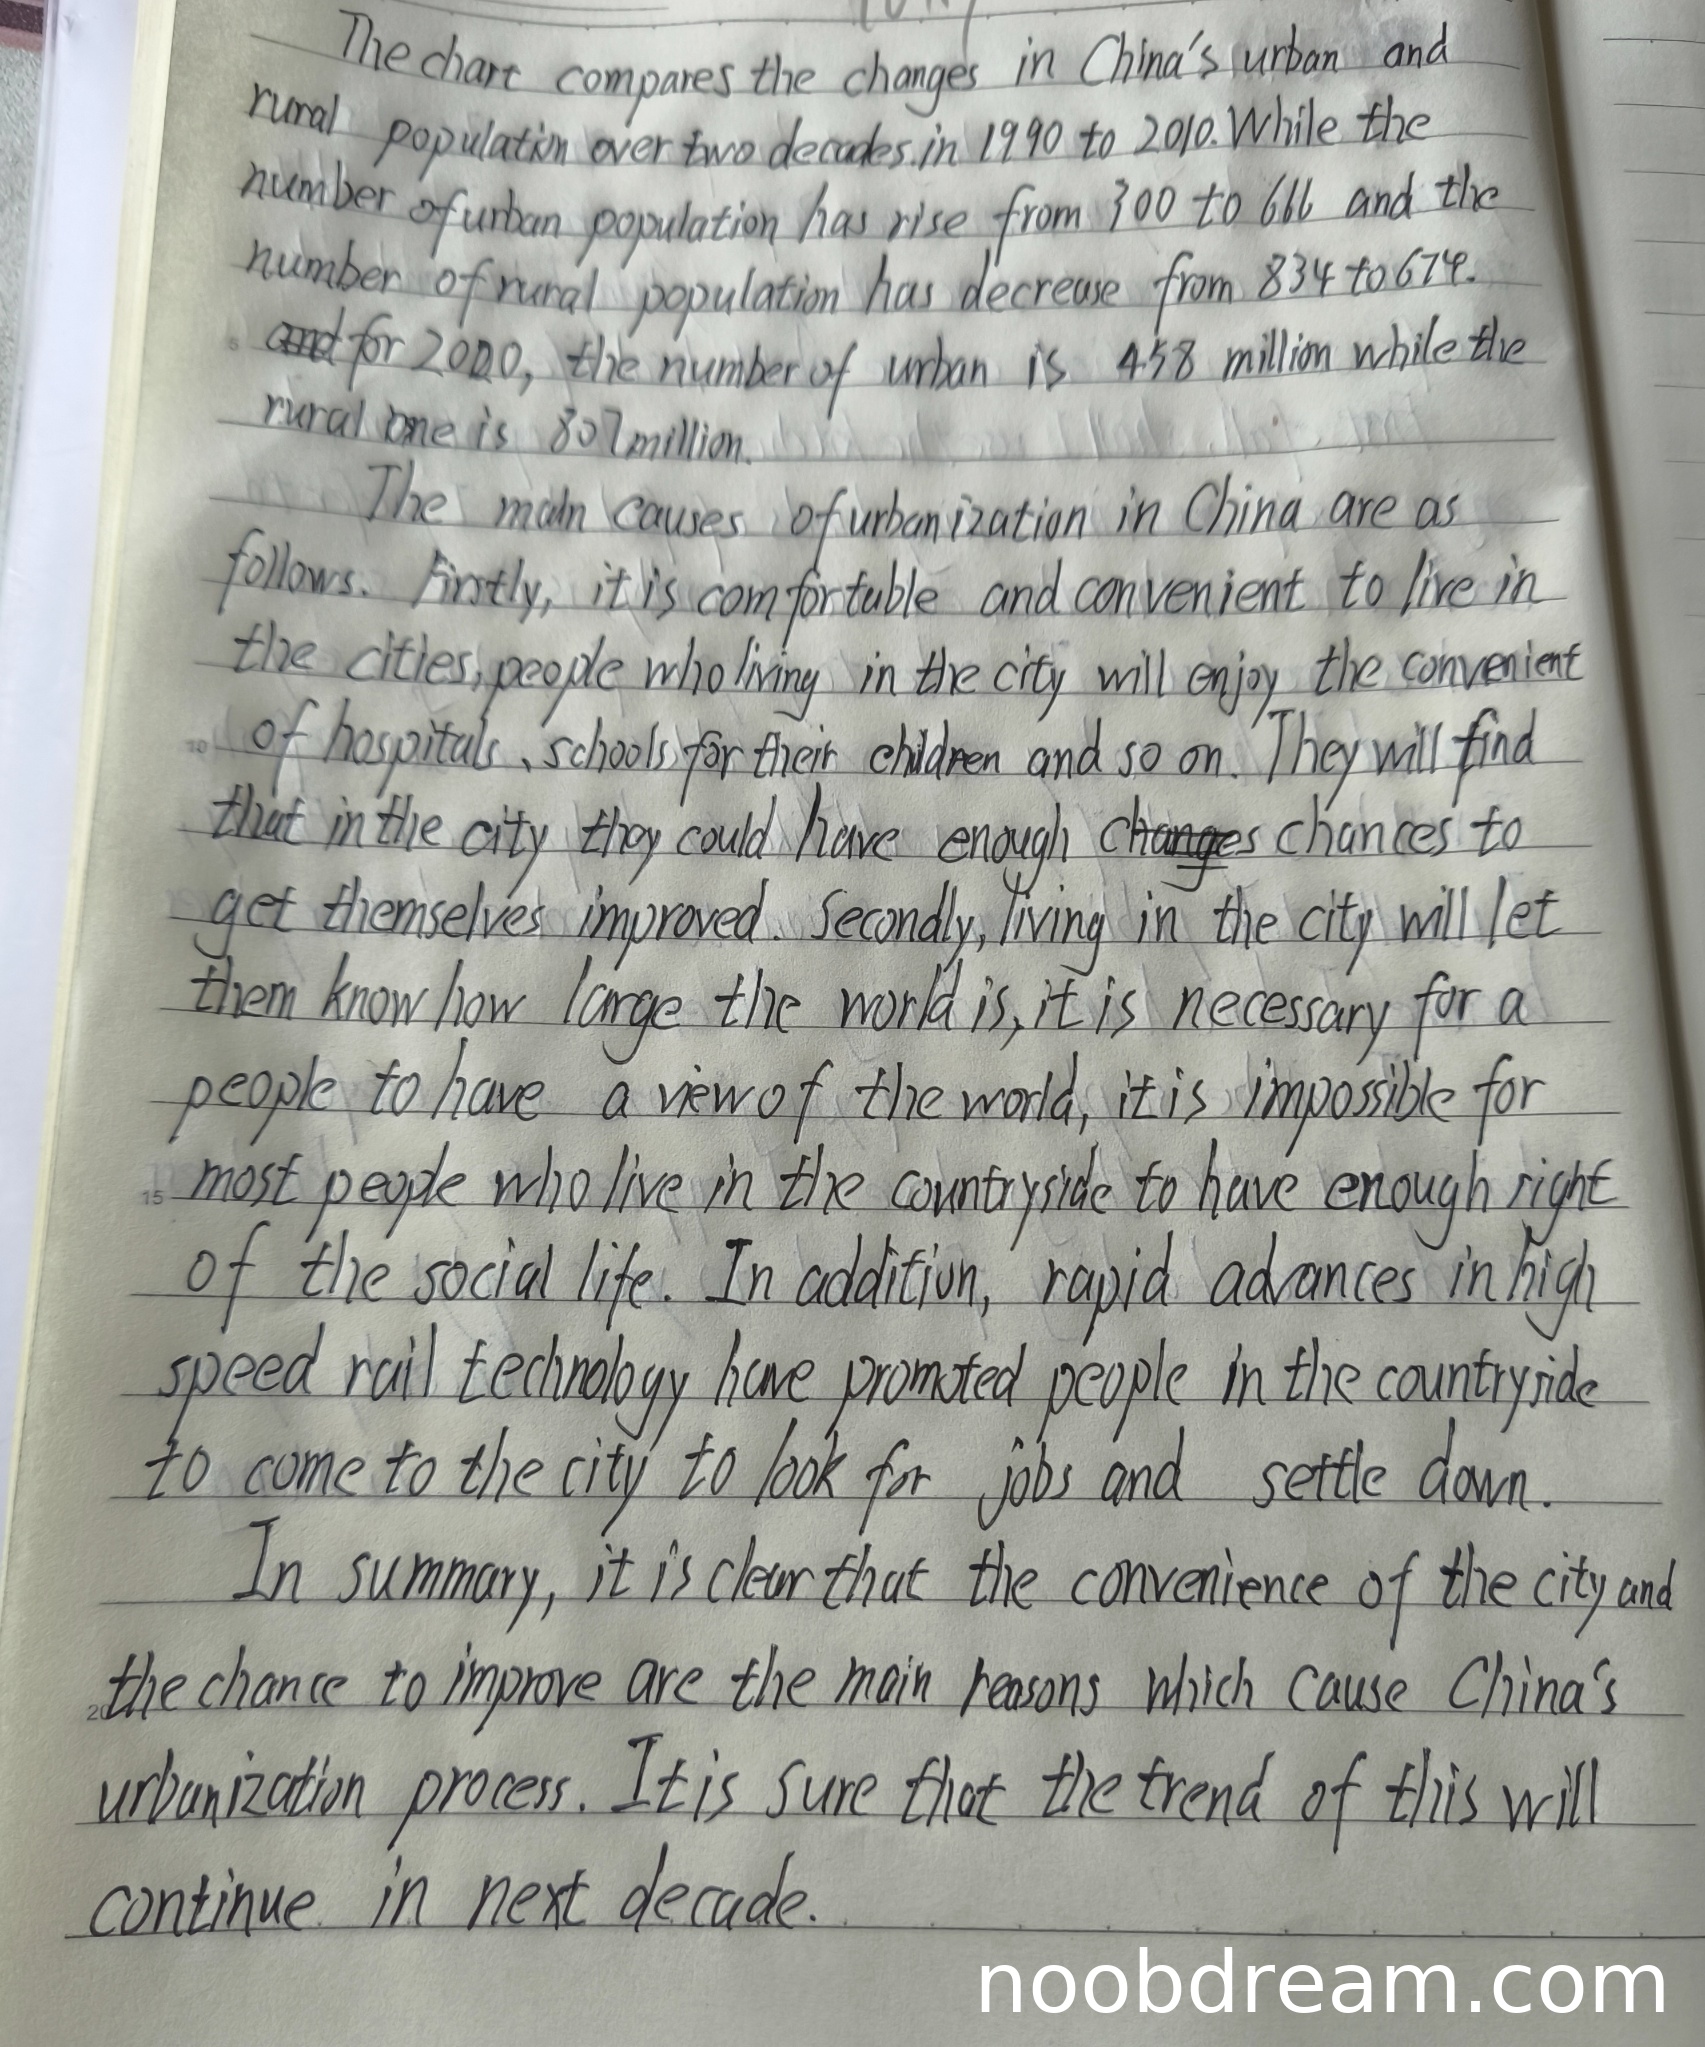 The chart compares the changes in China's urban and
rural population over two decades.in 1990 to 2010.While the
number of urban population has rise from 300 to 666 and the
number of rural population has decrease from 834 to 674.
and for 2000, the number of urban is 458 million while the
rural one is 807million.
The main causes of urbanization in China are as
follows. Firstly, it is comfortable and convenient to live in
the cities, people who living in the city will enjoy the convenient
of hospitals、schools for their children and so on. They will find
that in the city they could have enough changes chances to
get themselves improved. Secondly, living in the city will let
them know how large the world is, it is necessary for a
people to have a view of the world, it is impossible for
most people who live in the countryside to have enough right
of the social life. In addition, rapid advances in high
speed rail technology have promoted people in the countryside
to come to the city to look for jobs and settle down.
In summary, it is clear that the convenience of the city and
the chance to improve are the main reasons which cause China's
urbanization process. It is sure that the trend of this will
continue in next decade.
noobdream.com